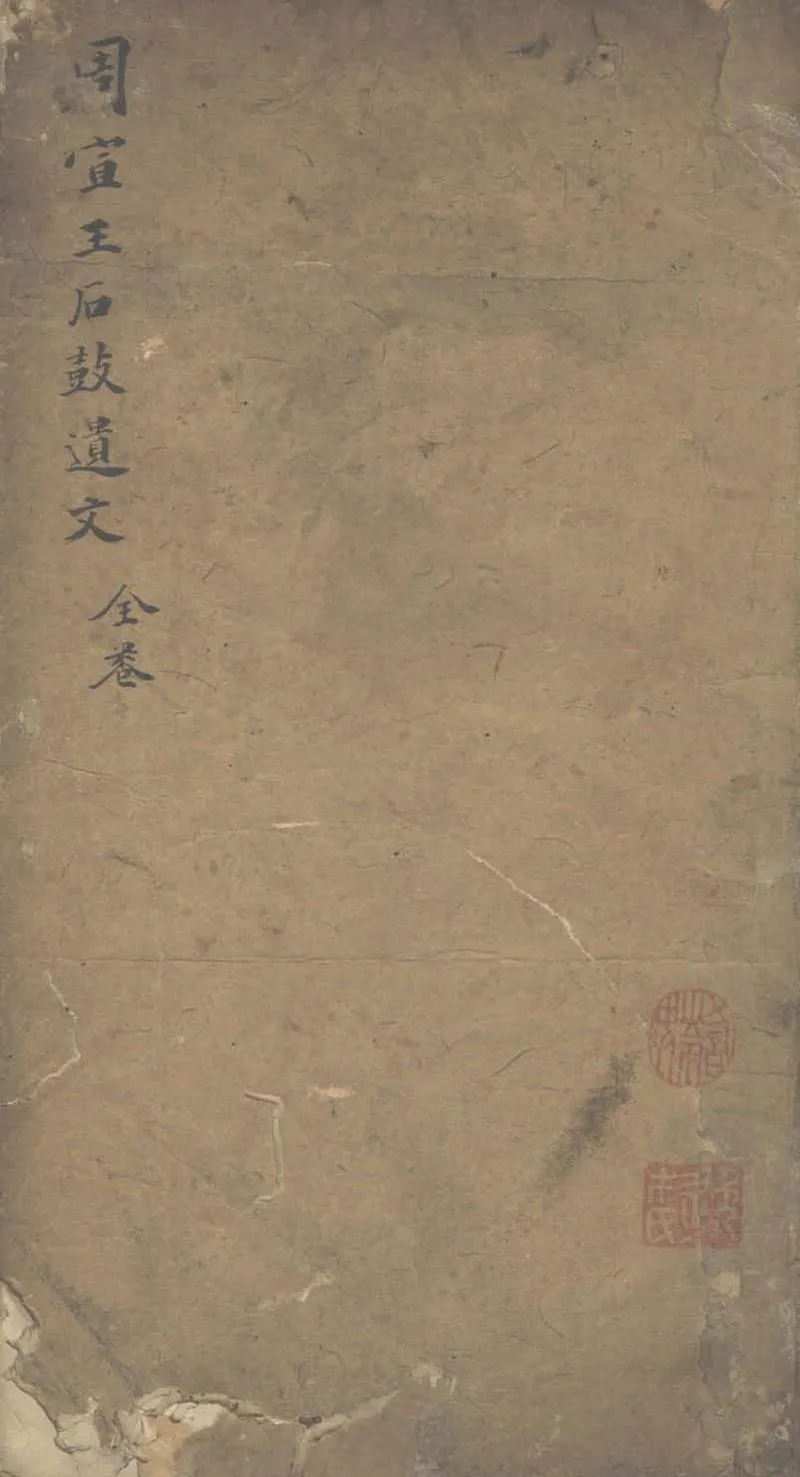 周宣王石鼓遺文
全卷